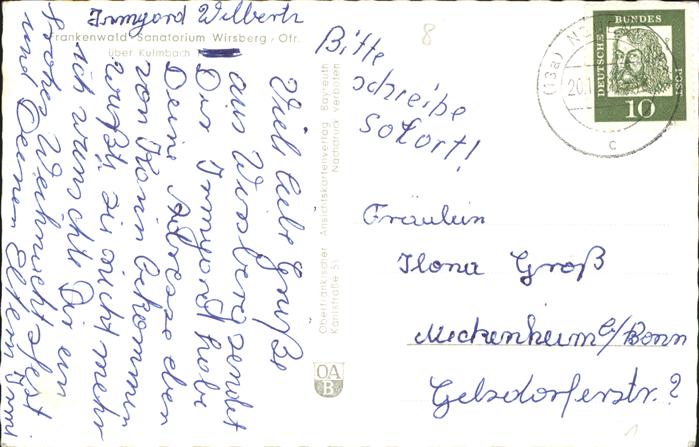 Irmgard Wilbertz
Frankenwald-Sanatorium Wirsberg, Ofr.
über Kulmbach
Viel liebe Grüße
aus Wirsberg sendet
Dir Irmgard habe
Deine Adresse eben
von Karin bekommen
wußte sie nicht mehr
ich wünsche Dir ein
frohes Weihnachtsfest
und Deinen Eltern Irmi
Bitte
schreibe
sofort!
Oberfränkischer Ansichtskartenverlag Bayreuth
Kantstraße 51 Nachdruck verboten
OA
B
DEUTSCHE
BUNDES
POST
10
(13a)
20.1
c
8
Fräulein
Ilona Groß
Meckenheim b/Bonn
Gelsdorferstr. ?
1